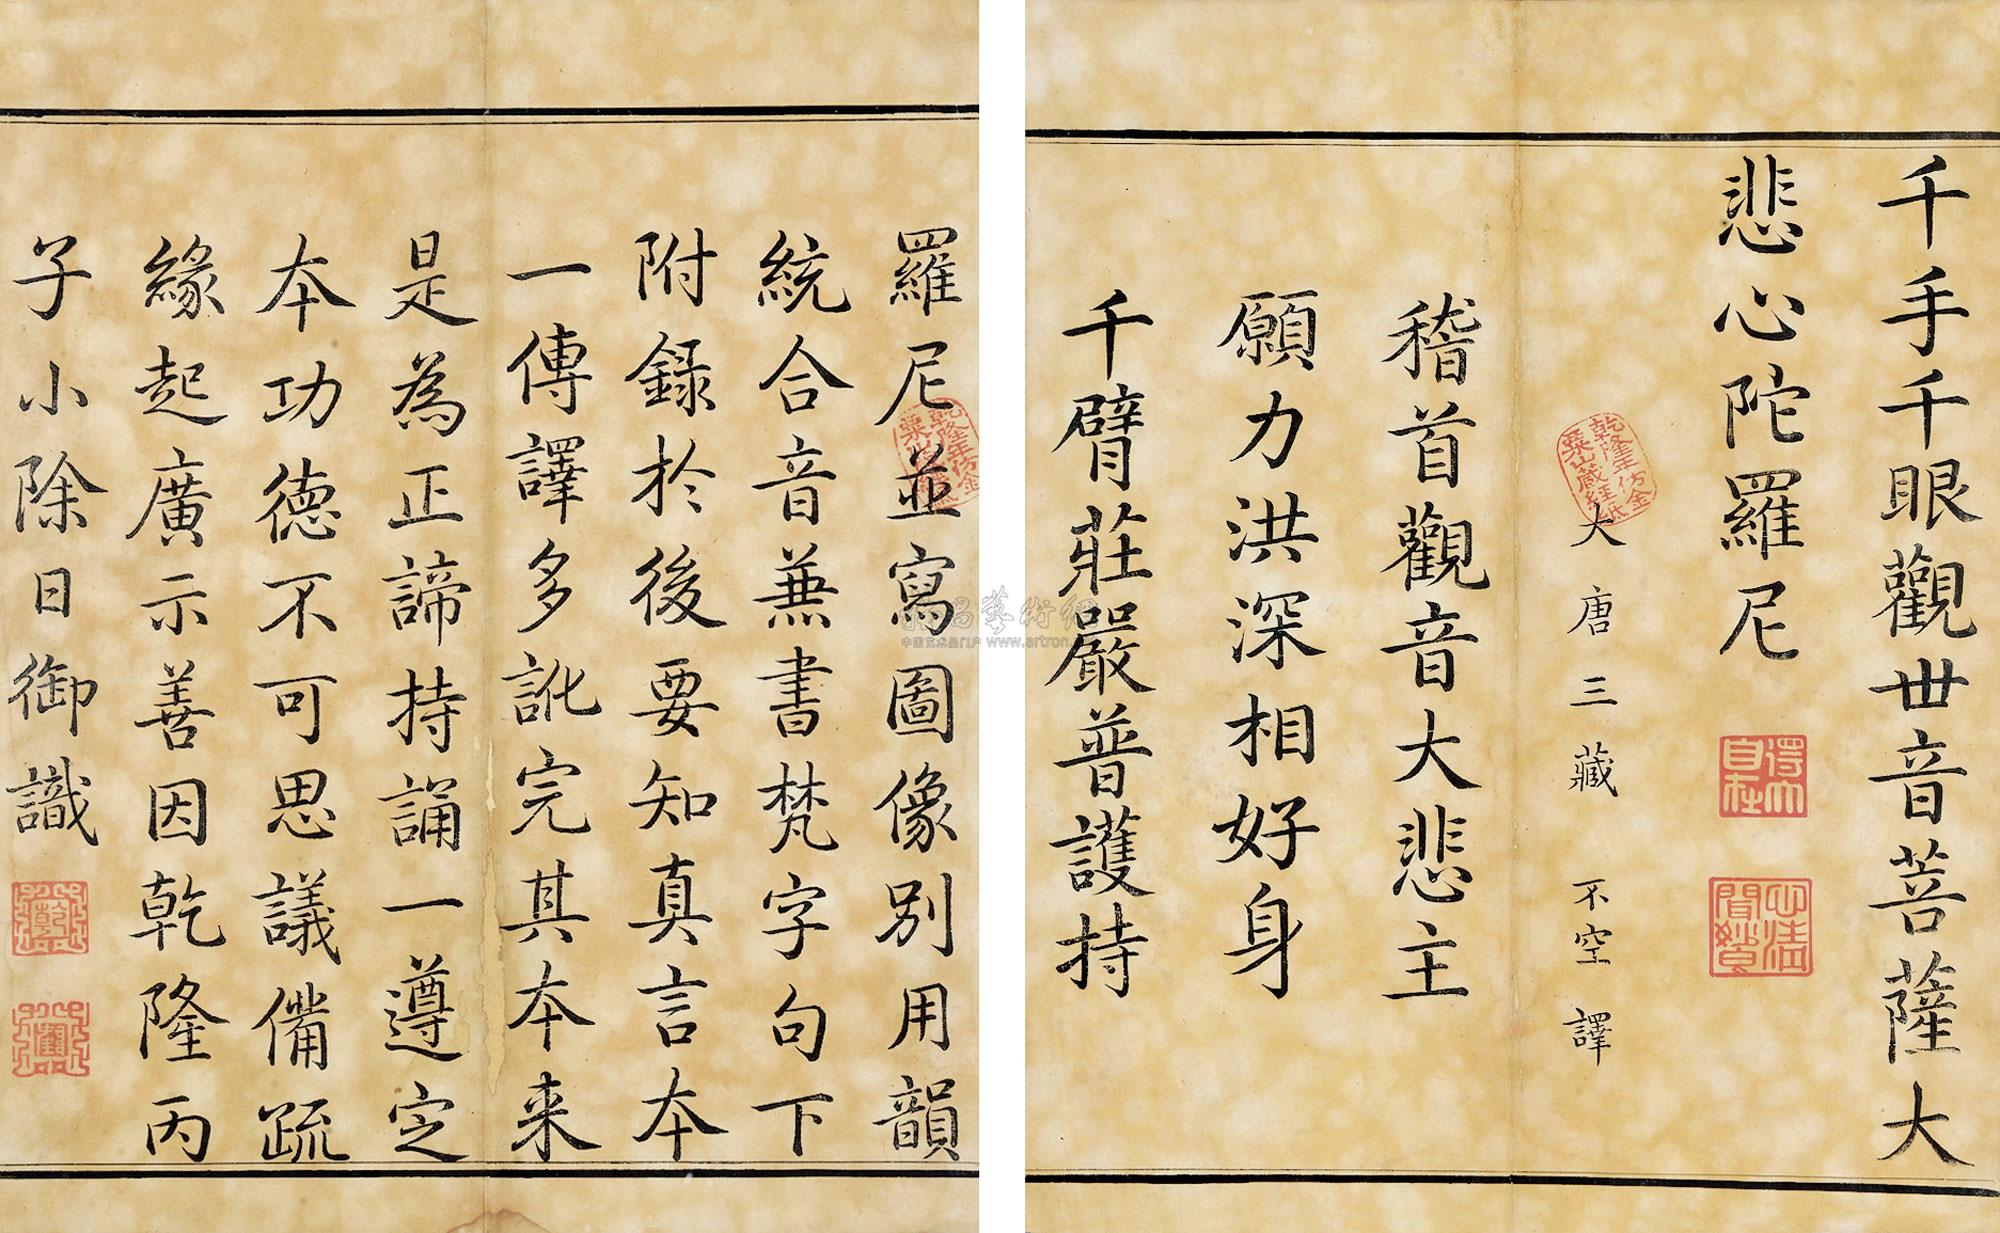 千手千眼觀世音菩薩大
悲心陀羅尼
得大自在
心清聞妙
乾隆年仿金
粟山藏經紙
大唐三藏不空譯
稽首觀音大悲主
願力洪深相好身
千臂莊嚴普護持
羅尼並寫圖像別用韻
統合音兼書梵字句下
附錄於後要知真言本
一傳譯多訛完其本来
是為正諦持誦一遵定
本功德不可思議備疏
緣起廣示善因乾隆丙
子小除日御識
乾
隆
中国艺术品门户 www.artron.